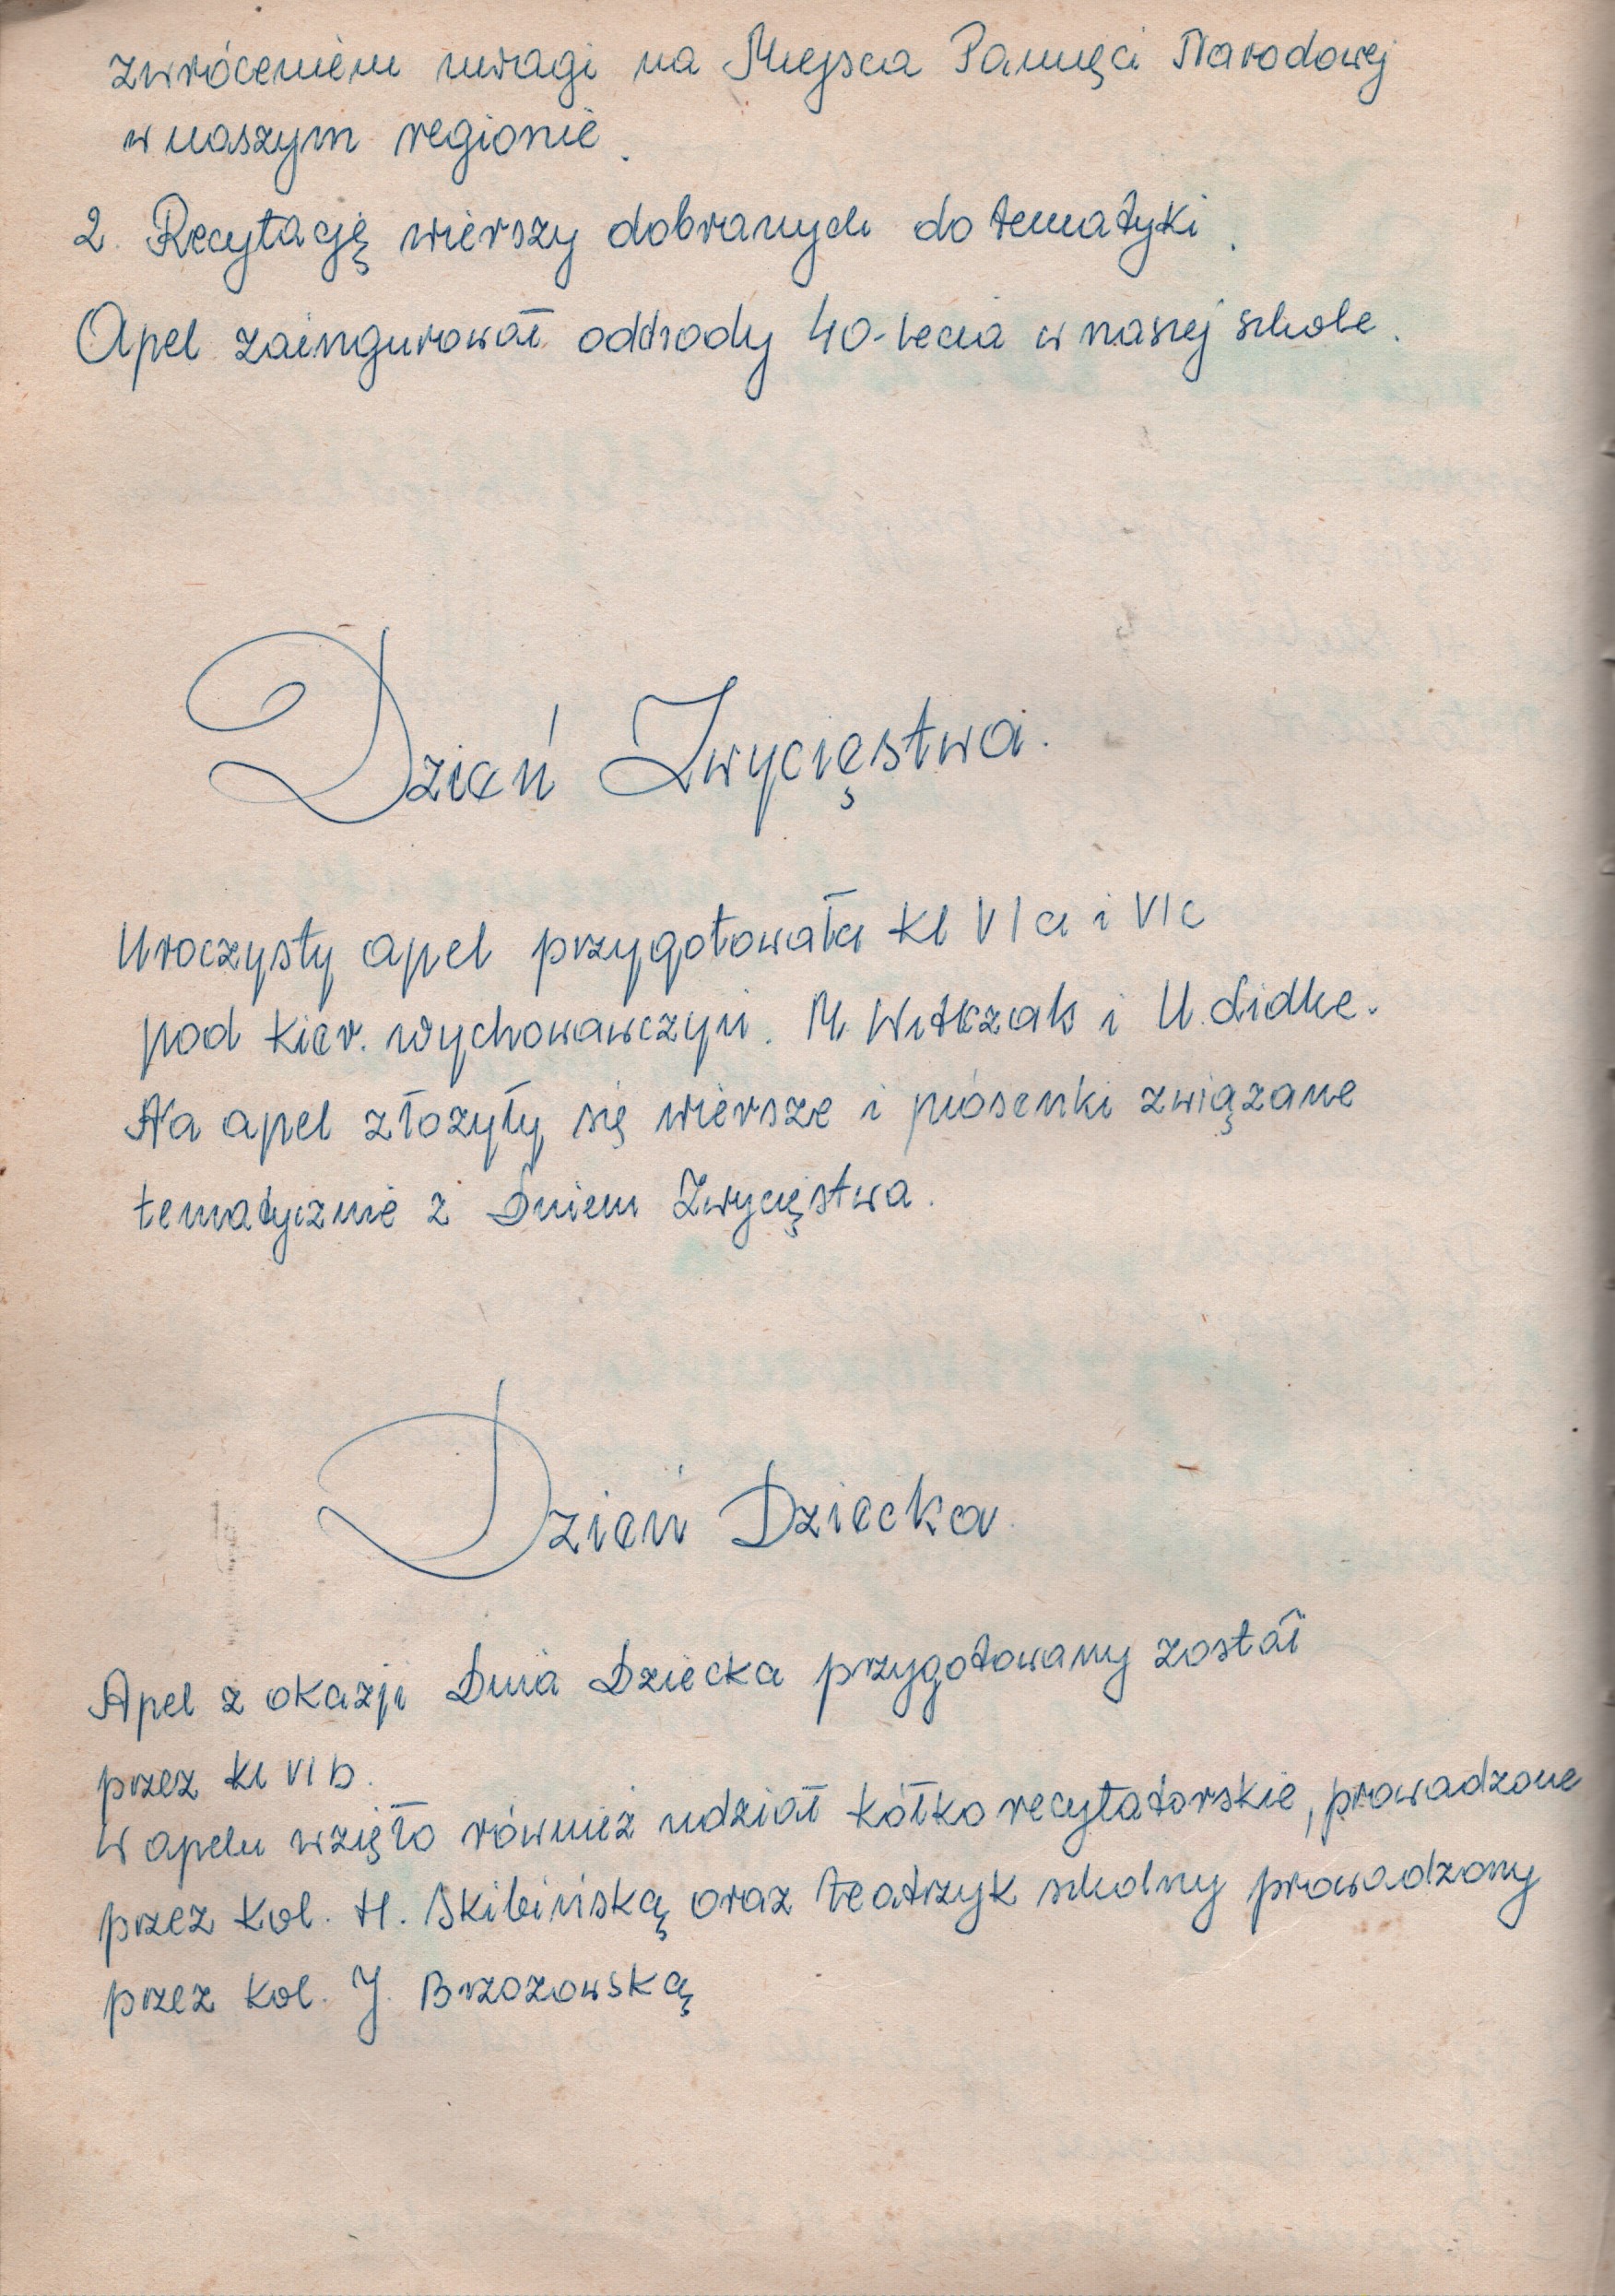 zwróceniem uwagi na Miejsca Pamięci Narodowej
w naszym regionie.
2. Recytację wierszy dobranych do tematyki.
Apel zaingurował obchody 40-lecia w naszej szkole.
Dzień Zwycięstwa.
Uroczysty apel przygotowała kl VIa i VIc
pod kier. wychowawczyń. M. Witkzak i U. Lidke.
Na apel złożyły się wiersze i piosenki związane
tematycznie z Dniem Zwycięstwa.
Dzień Dziecka.
Apel z okazji Dnia Dziecka przygotowany został
przez kl VIb.
W apelu wzięło również udział kółko recytatorskie, prowadzone
przez kol. H. Skibińską oraz teatrzyk szkolny prowadzony
przez kol. J. Brzozowską